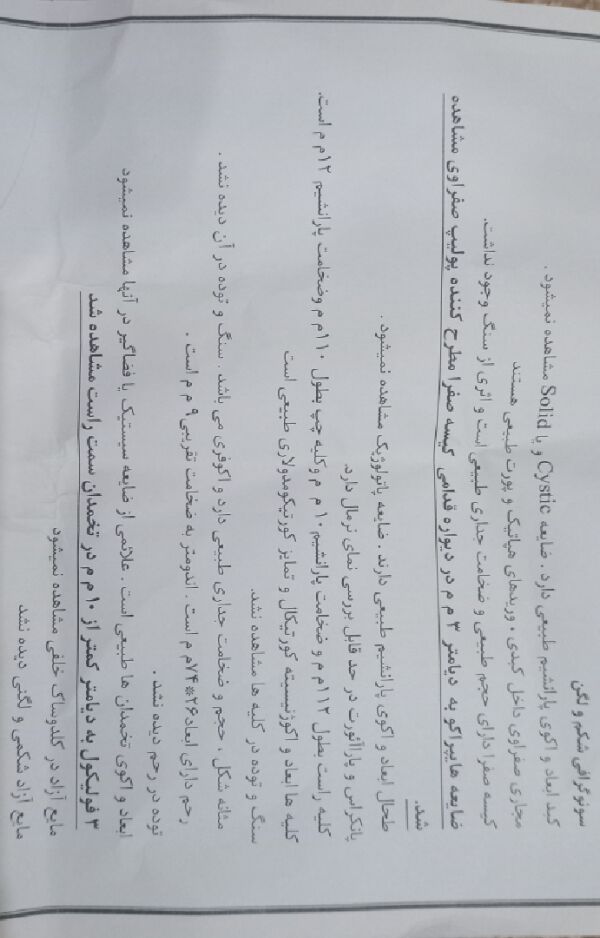 سونوگرافی شکم و لگن
کبد ابعاد و اکوی پارانشیم طبیعی دارد. ضایعه Cystic و یا Solid مشاهده نمیشود .
مجاری صفراوی داخل کبدی ، وریدهای هپاتیک و پورت طبیعی هستند
کیسه صفرا دارای حجم طبیعی و ضخامت جداری طبیعی است و اثری از سنگ وجود نداشت.
ضایعه هایپراکو به دیامتر ۳ م م در دیواره قدامی کیسه صفرا مطرح کننده پولیپ صفراوی مشاهده
شد.
طحال ابعاد و اکوی پارانشیم طبیعی دارند . ضایعه پاتولوژیک مشاهده نمیشود .
پانکراس و پاراآئورت در حد قابل بررسی نمای نرمال دارد.
کلیه راست بطول ۱۱۲م م و ضخامت پارانشیم۱۰ م م وکلیه چپ بطول ۱۱۰م م وضخامت پارانشیم ۱۲م م است.
کلیه ها ابعاد و اکوژنیسیته کورتیکال و تمایز کورتیکومدولاری طبیعی است
سنگ و توده در کلیه ها مشاهده نشد.
مثانه شکل ، حجم و ضخامت جداری طبیعی دارد و اکوفری می باشد . سنگ و توده در آن دیده نشد .
رحم دارای ابعاد۲۶*۷۴م م است . اندومتر به ضخامت تقریبی ۹ م م است .
توده در رحم دیده نشد .
ابعاد و اکوی تخمدان ها طبیعی است . علائمی از ضایعه سیستیک یا فضاگیر در آنها مشاهده نمیشود
۳ فولیکول به دیامتر کمتر از ۱۰ م م در تخمدان سمت راست مشاهده شد
مایع آزاد در کلدوساک خلفی مشاهده نمیشود
مایع آزاد شکمی و لگنی دیده نشد